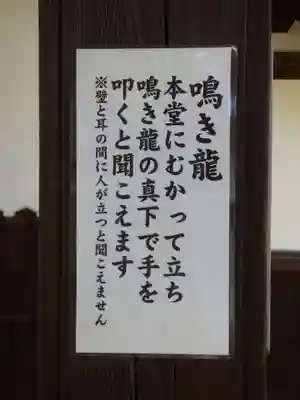 鳴き龍
本堂にむかって立ち
鳴き龍の真下で手を
叩くと聞こえます
※壁と耳の間に人が立つと聞こえません